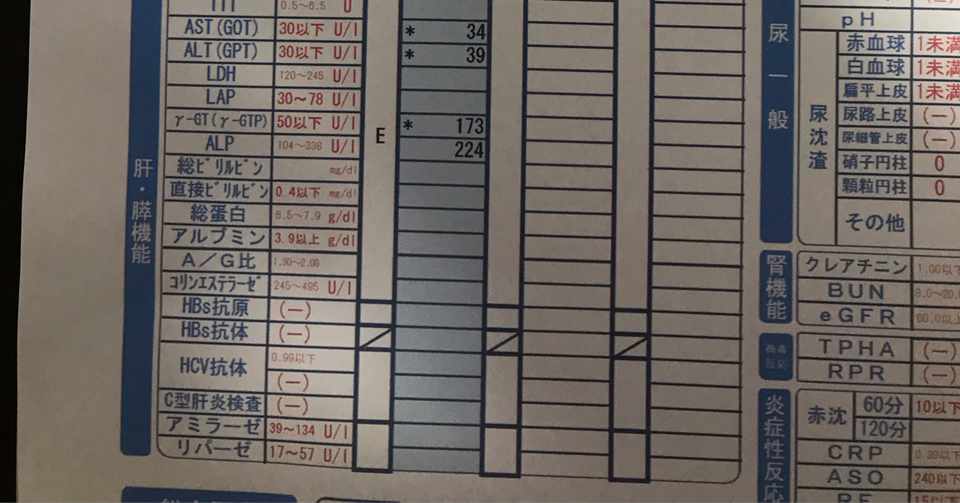 AST(GOT) 30以下 U/l * 34
ALT(GPT) 30以下 U/l * 39
LDH 120～245 U/l
LAP 30～78 U/l
γ-GT(γ-GTP) 50以下 U/l E * 173
ALP 104～338 U/l 224
総ﾋﾞﾘﾙﾋﾞﾝ mg/dl
直接ﾋﾞﾘﾙﾋﾞﾝ 0.4以下 mg/dl
総蛋白 6.5～7.9 g/dl
アルブミン 3.9以上 g/dl
A／G比
ｺﾘﾝｴｽﾃﾗｰｾﾞ 245～495 U/l
HBs抗原 (－)
HBs抗体 (－)
HCV抗体 0.99以下
(－)
C型肝炎検査 (－)
アミラーゼ 39～134 U/l
リパーゼ 17～57 U/l
肝・膵機能
尿一般
pH
尿沈渣
赤血球 1未満
白血球 1未満
扁平上皮 1未満
尿路上皮 (－)
尿細管上皮 (－)
硝子円柱 0
顆粒円柱 0
その他
腎機能
クレアチニン 1.00以下
BUN
eGFR
TPHA (－)
RPR (－)
炎症性反応
赤沈 60分 10以下
120分
CRP
ASO 240以下